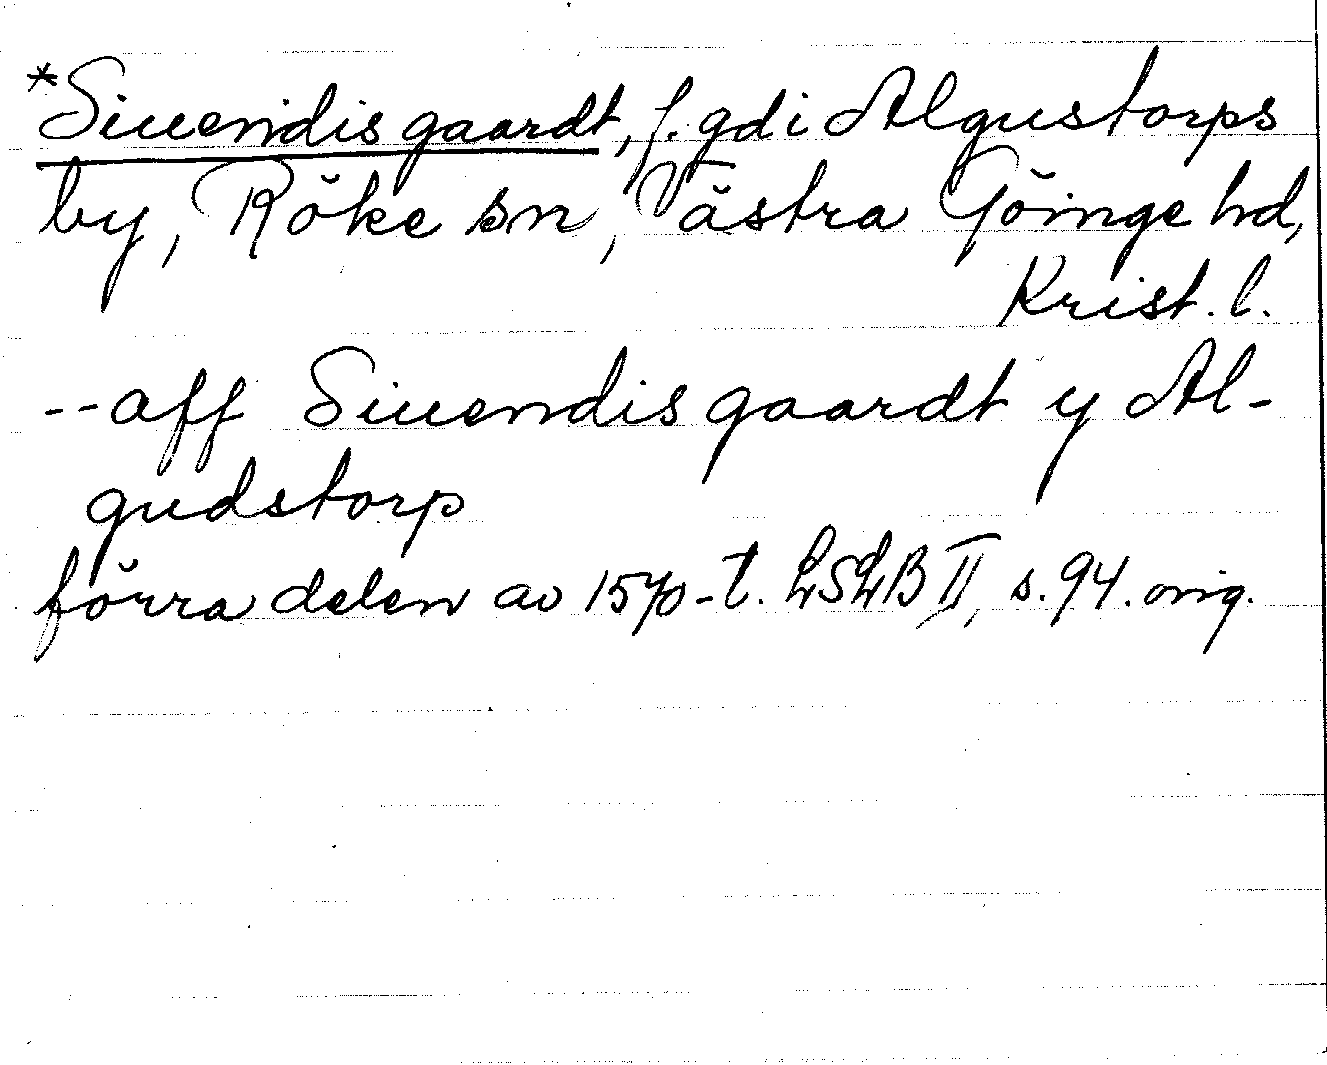 *Siuendis gaardt, f. gd i Algustorps
by, Röke sn, Västra Göinge hd,
Krist. l.
-- aff Siuendis gaardt y Al-
gudstorp
förra delen av 1570-t. LSLB II, s. 94. orig.